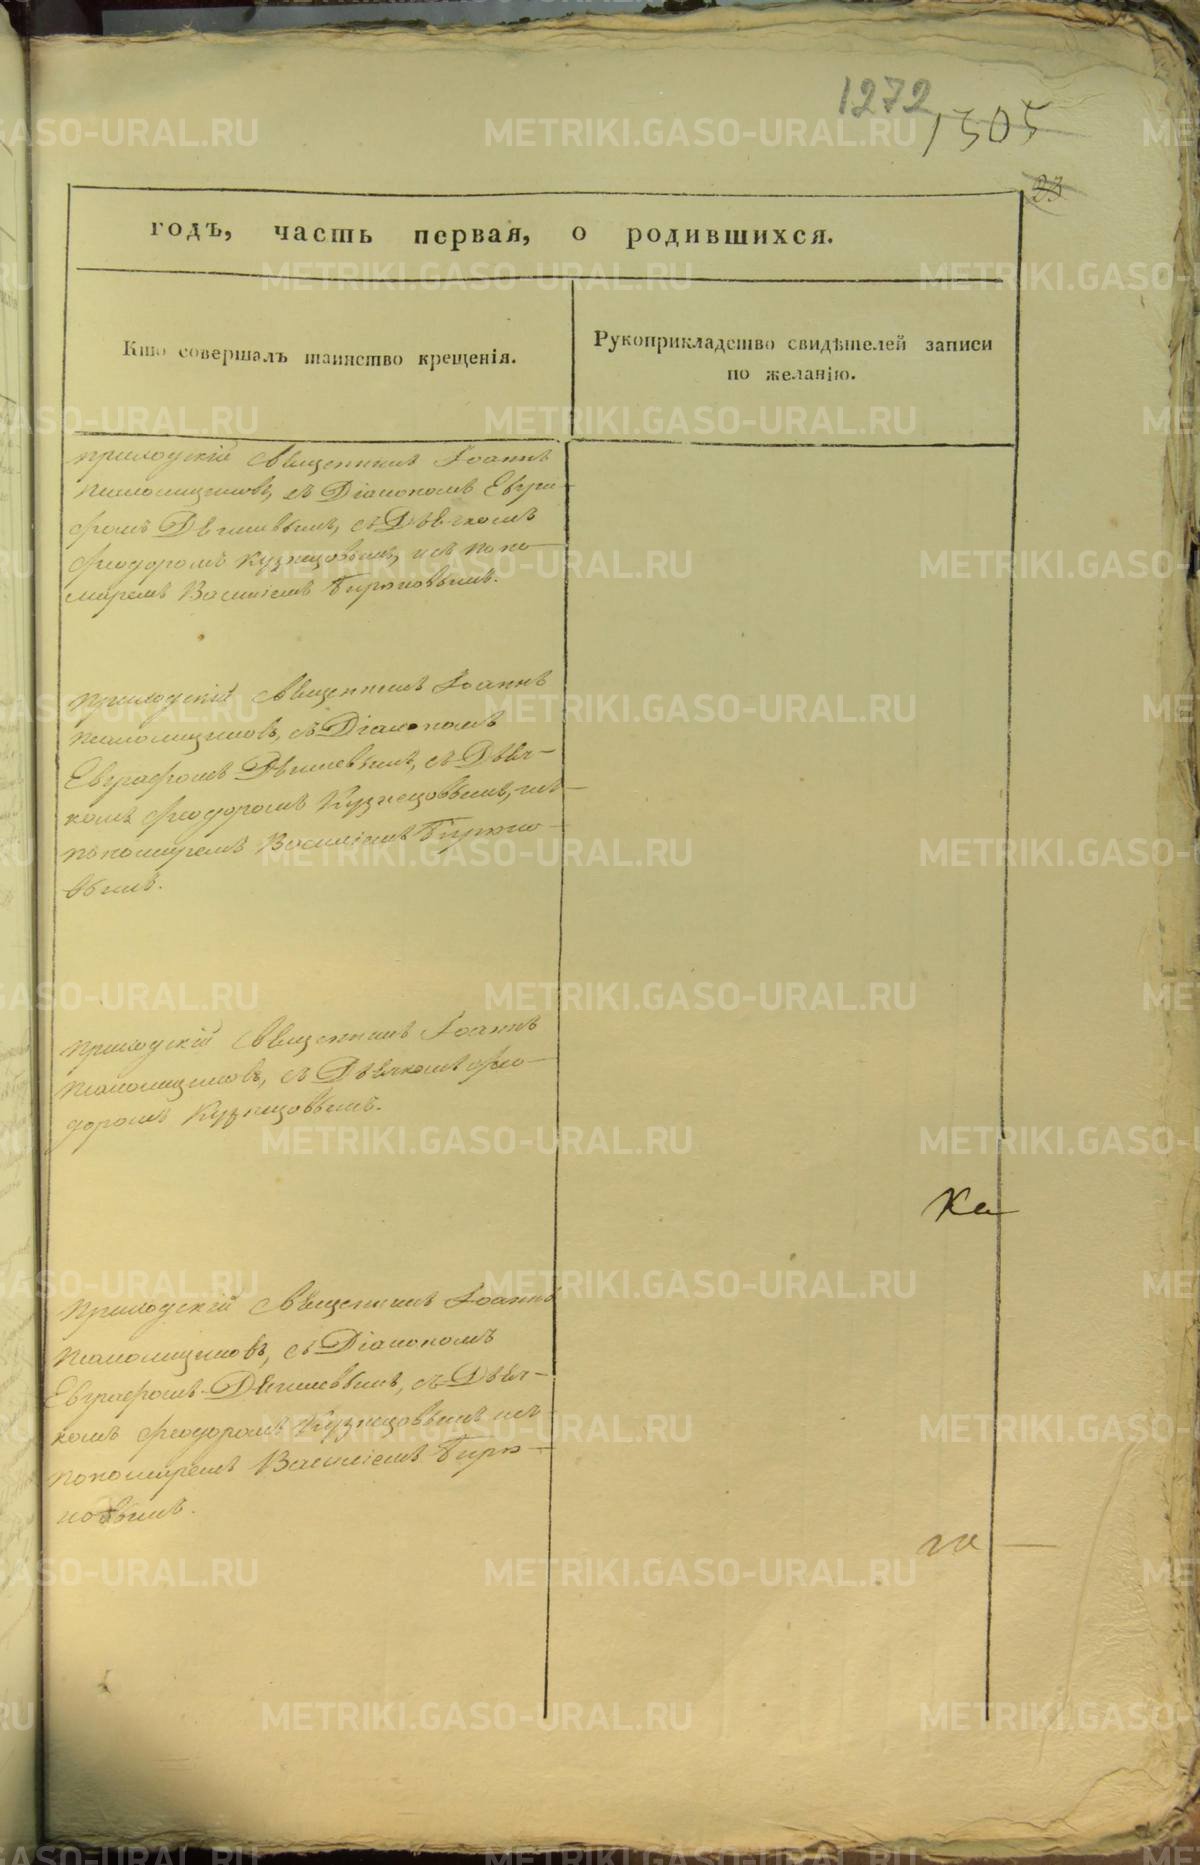 1272
1305
33
годъ, часть первая, о родившихся.
Кто совершалъ таинство крещенія.
Рукоприкладство свидѣтелей записи
по желанію.
приходскій Священникъ Іоаннъ
съ Діакономъ Евгра-
фомъ съ Дьячкомъ
Феодоромъ Кузнецовымъ, и съ поно-
маремъ Василіемъ Бирюковымъ.
приходскій Священникъ Іоаннъ
съ Діакономъ
Евграфомъ съ Дьяч-
комъ Феодоромъ Кузнецовымъ, и съ
пономаремъ Василіемъ Бирюко-
вымъ.
приходскій Священникъ Іоаннъ
съ Дьячкомъ Фео-
доромъ Кузнецовымъ.
Ка
приходскій Священникъ Іоаннъ
съ Діакономъ
Евграфомъ съ Дьяч-
комъ Феодоромъ Кузнецовымъ и съ
пономаремъ Василіемъ Бирю-
ковымъ.
METRIKI.GASO-URAL.RU